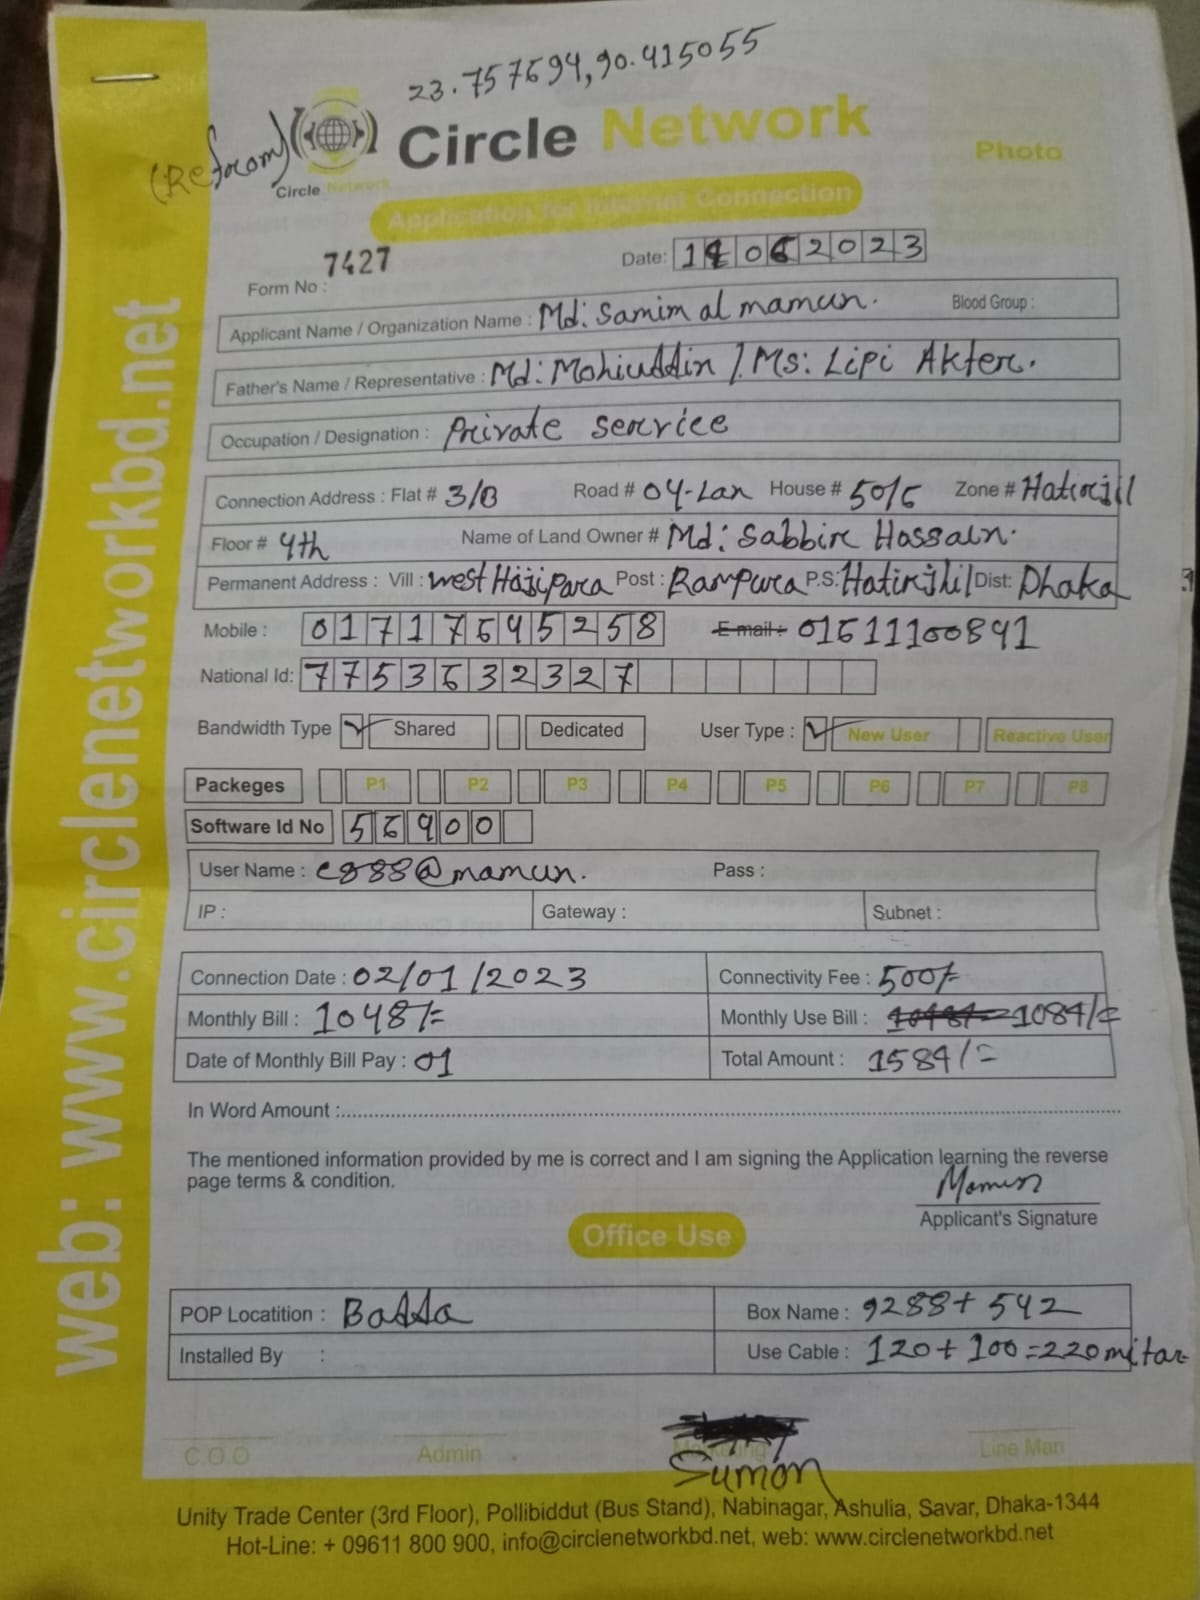 23.757694,90.415055
(Reform)
Circle Network
Circle Network
Photo
Application for Internet Connection
Form No : 7427
Date: 062023
Applicant Name / Organization Name : Md: Samim al mamun. Blood Group :
Father's Name / Representative : Md: Mohiuddin / Ms: Lipi Akter.
Occupation / Designation : Private service
Connection Address : Flat # 3/B Road # 04-Lan House # 50/5 Zone # Hatirjil
Floor # 4th Name of Land Owner # Md: Sabbir Hossain.
Permanent Address : Vill : west Hajipara Post : Rampura P.S: Hatirjhil Dist: Dhaka
Mobile : 01717645258 E-mail : 01611100841
National Id: 7753632327
Bandwidth Type Shared Dedicated User Type : New User Reactive User
Packeges P1 P2 P3 P4 P5 P6 P7 P8
Software Id No 56900
User Name : c988@mamun. Pass :
IP : Gateway : Subnet :
Connection Date : 02/01/2023 Connectivity Fee : 500/-
Monthly Bill : 1048/= Monthly Use Bill : 1084/=
Date of Monthly Bill Pay : 01 Total Amount : 1584/=
In Word Amount :
The mentioned information provided by me is correct and I am signing the Application learning the reverse
page terms & condition.
Mamun
Applicant's Signature
Office Use
POP Locatition : Badda Box Name : 9288+542
Installed By : Use Cable : 120+100=220mitar
C.O.O Admin Marketing Line Man
Sumon
Unity Trade Center (3rd Floor), Pollibiddut (Bus Stand), Nabinagar, Ashulia, Savar, Dhaka-1344
Hot-Line: + 09611 800 900, info@circlenetworkbd.net, web: www.circlenetworkbd.net
web: www.circlenetworkbd.net